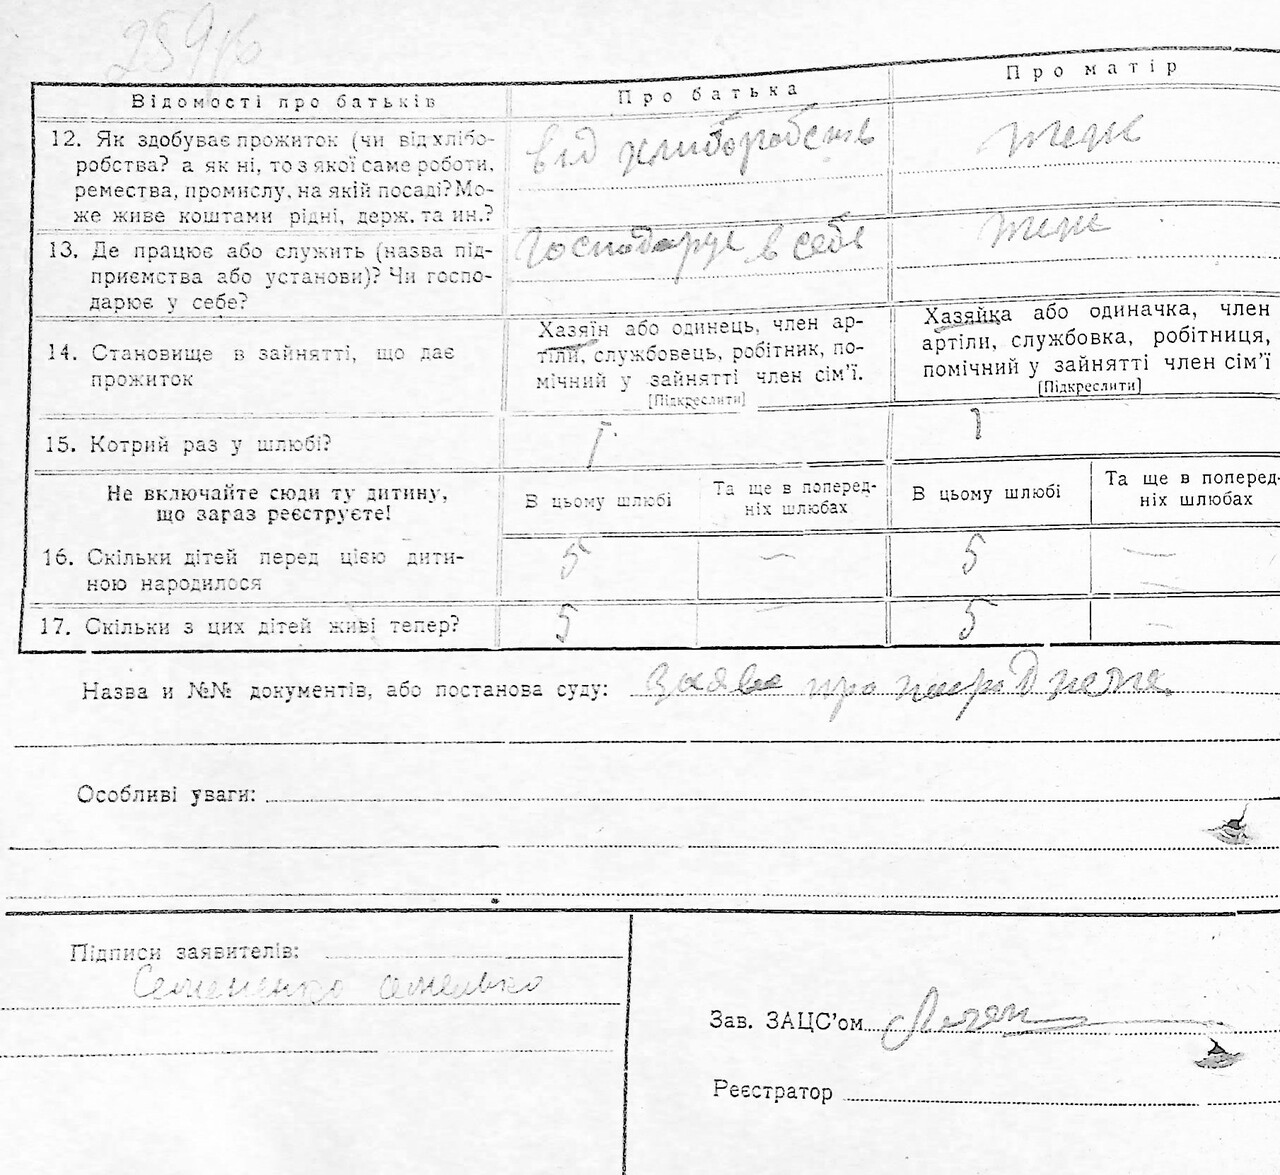 259/б
Відомості про батьків
Про батька
Про матір
12. Як здобуває прожиток (чи від хлібо-
робства? а як ні, то з якої саме роботи,
ремества, промислу, на якій посаді? Мо-
же живе коштами рідні, держ. та ин.?
від хлиборобства
теж
13. Де працює або служить (назва під-
приємства або установи)? Чи госпо-
дарює у себе?
Господарує в себе
теж
14. Становище в зайнятті, що дає
прожиток
Хазяїн або одинець, член ар-
тіли, службовець, робітник, по-
мічний у зайнятті член сім’ї.
[Підкреслити]
Хазяйка або одиначка, член
артіли, службовка, робітниця,
помічний у зайнятті член сім’ї
[Підкреслити]
15. Котрий раз у шлюбі?
1
1
Не включайте сюди ту дитину,
що зараз реєструєте!
В цьому шлюбі
Та ще в поперед-
ніх шлюбах
В цьому шлюбі
Та ще в поперед-
ніх шлюбах
16. Скільки дітей перед цією дити-
ною народилося
5 — 5 —
17. Скільки з цих дітей живі тепер?
5 — 5 —
Назва и №№ документів, або постанова суду: заява про
Особливі уваги:
Підписи заявителів:
Семененко
Зав. ЗАЦС’ом
Реєстратор